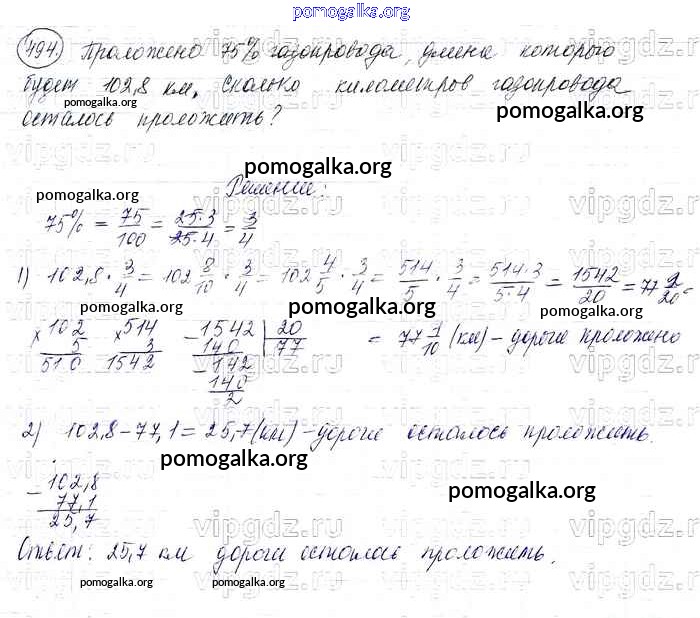 pomogalka.org
494. Проложено 75% газопровода, длина которого
будет 102,8 км. Сколько километров газопровода
pomogalka.org
pomogalka.org
осталось проложить?
pomogalka.org
Решение:
pomogalka.org
75% = 75/100 = 25·3/25·4 = 3/4
1) 102,8 · 3/4 = 102 8/10 · 3/4 = 102 4/5 · 3/4 = 514/5 · 3/4 = 514·3/5·4 = 1542/20 = 77 2/20 =
pomogalka.org
pomogalka.org
× 102 × 514 - 1542 | 20
5 3 140 77
510 1542 - 142
140
2
= 77 1/10 (км) – дороги проложено
2) 102,8 – 77,1 = 25,7 (км) – дороги осталось проложить.
pomogalka.org
- 102,8
77,1
25,7
pomogalka.org
Ответ: 25,7 км дороги осталось проложить.
pomogalka.org
pomogalka.org
vipgdz.ru
vipgdz.ru
vipgdz.ru